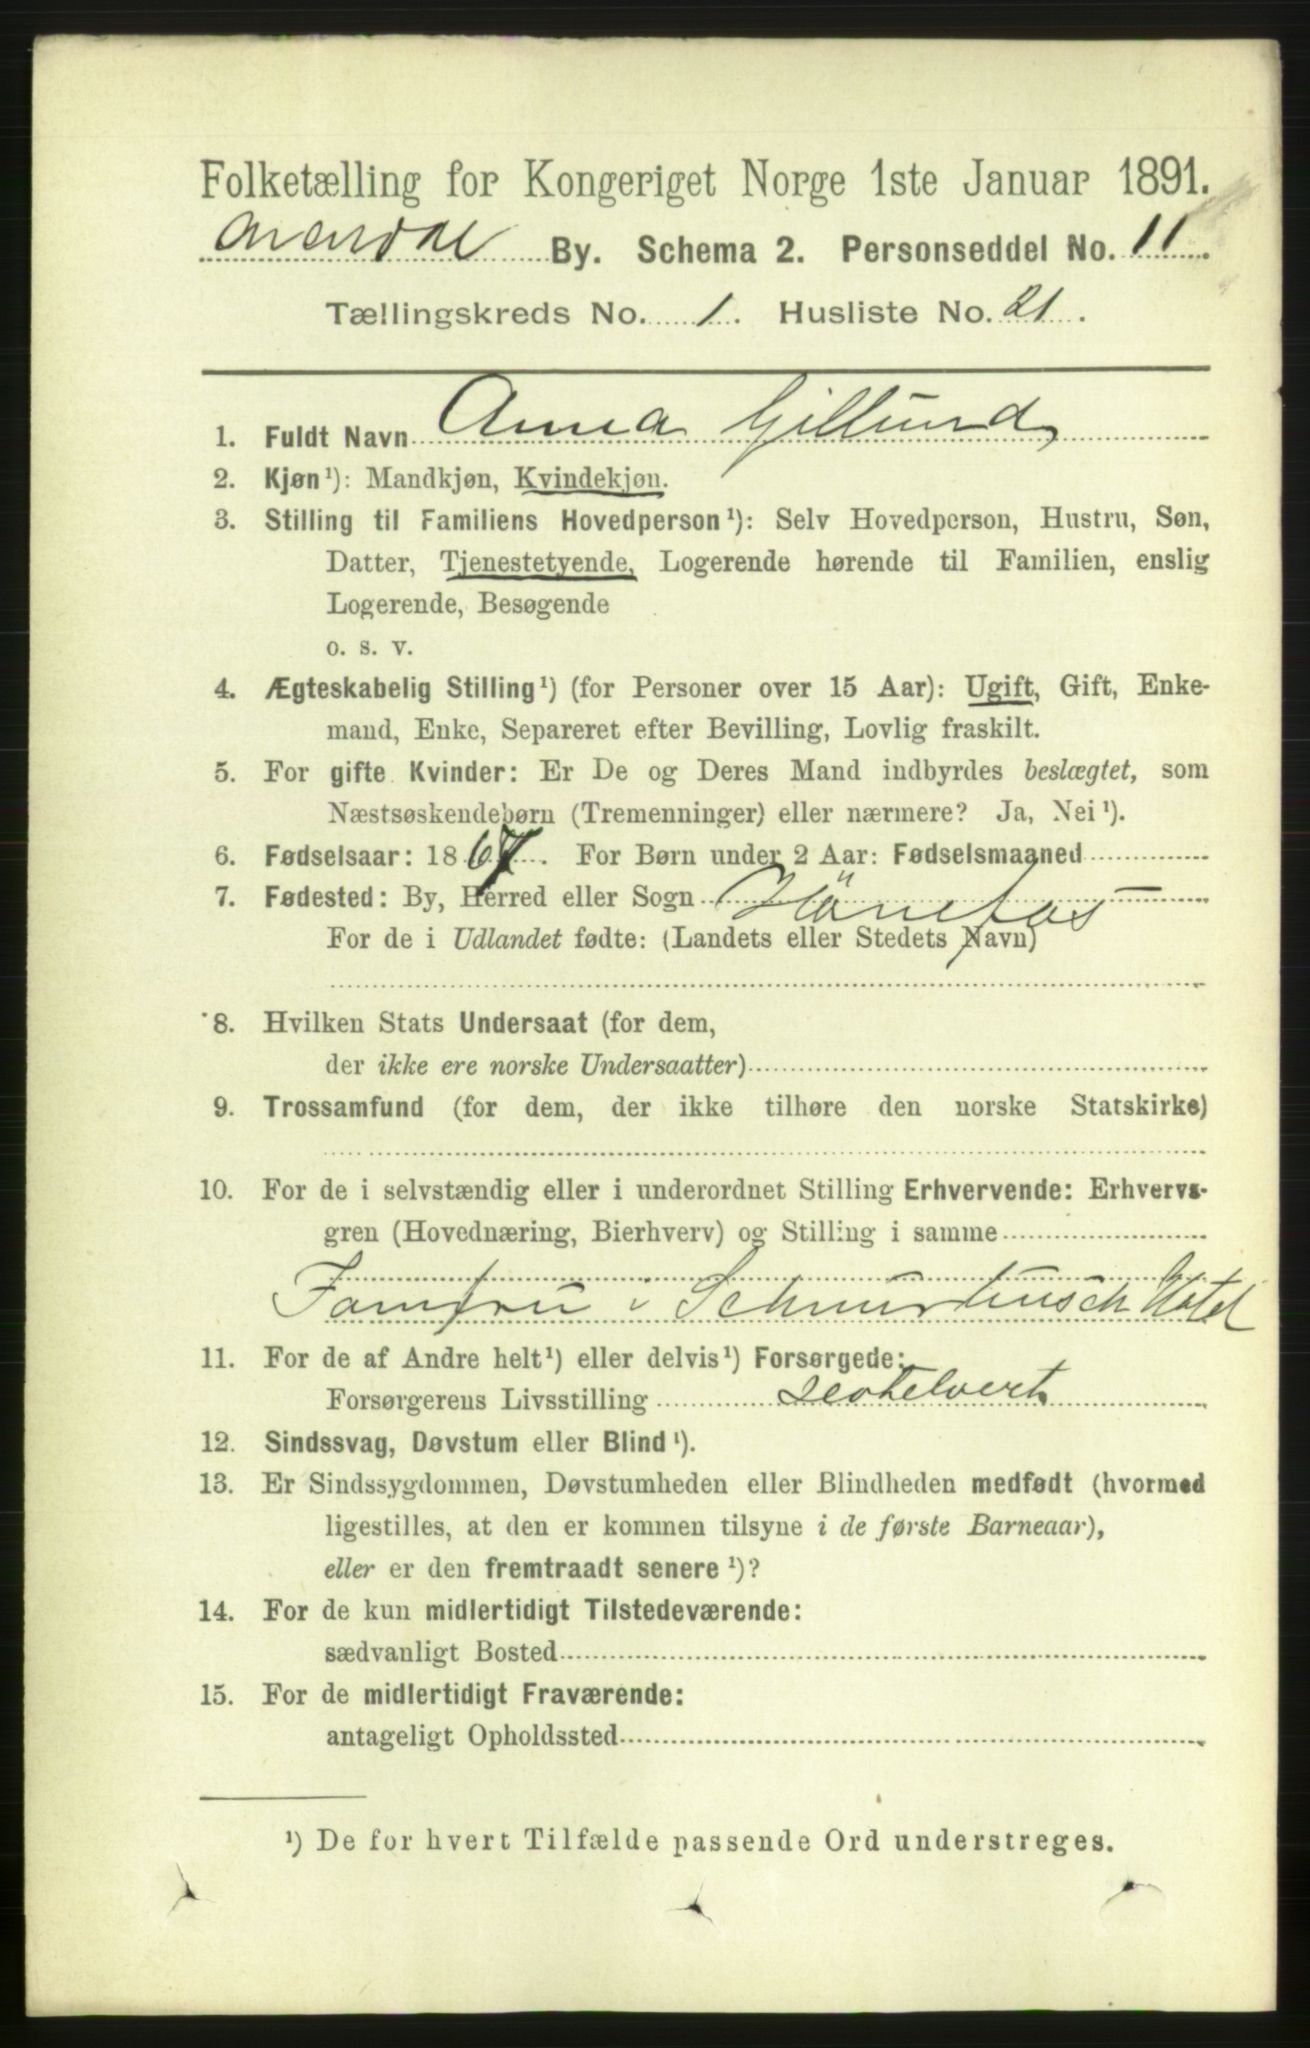 Folketælling for Kongeriget Norge 1ste Januar 1891.
Arendal By. Schema 2. Personseddel No. 11.
Tællingskreds No. 1. Husliste No. 21.
1. Fuldt Navn Anna Gillund
2. Kjøn¹): Mandkjøn, Kvindekjøn.
3. Stilling til Familiens Hovedperson¹): Selv Hovedperson, Hustru, Søn,
Datter, Tjenestetyende, Logerende hørende til Familien, enslig
Logerende, Besøgende
o. s. v.
4. Ægteskabelig Stilling¹) (for Personer over 15 Aar): Ugift, Gift, Enke-
mand, Enke, Separeret efter Bevilling, Lovlig fraskilt.
5. For gifte Kvinder: Er De og Deres Mand indbyrdes beslægtet, som
Næstsøskendebørn (Tremenninger) eller nærmere? Ja, Nei¹).
6. Fødselsaar: 1867. For Børn under 2 Aar: Fødselsmaaned
7. Fødested: By, Herred eller Sogn Hönefos
For de i Udlandet fødte: (Landets eller Stedets Navn)
8. Hvilken Stats Undersaat (for dem,
der ikke ere norske Undersaatter)
9. Trossamfund (for dem, der ikke tilhøre den norske Statskirke)
10. For de i selvstændig eller i underordnet Stilling Erhvervende: Erhvervs-
gren (Hovednæring, Bierhverv) og Stilling i samme
Jomfru i Schnurbusch Hotel
11. For de af Andre helt¹) eller delvis¹) Forsørgede:
Forsørgerens Livsstilling Hotelvert
12. Sindssvag, Døvstum eller Blind¹).
13. Er Sindssygdommen, Døvstumheden eller Blindheden medfødt (hvormed
ligestilles, at den er kommen tilsyne i de første Barneaar),
eller er den fremtraadt senere¹)?
14. For de kun midlertidigt Tilstedeværende:
sædvanligt Bosted
15. For de midlertidigt Fraværende:
antageligt Opholdssted
¹) De for hvert Tilfælde passende Ord understreges.